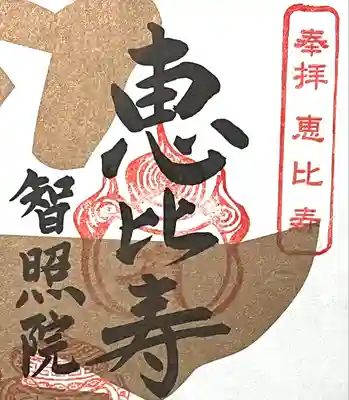 奉拝 恵比寿
恵比寿
智照院